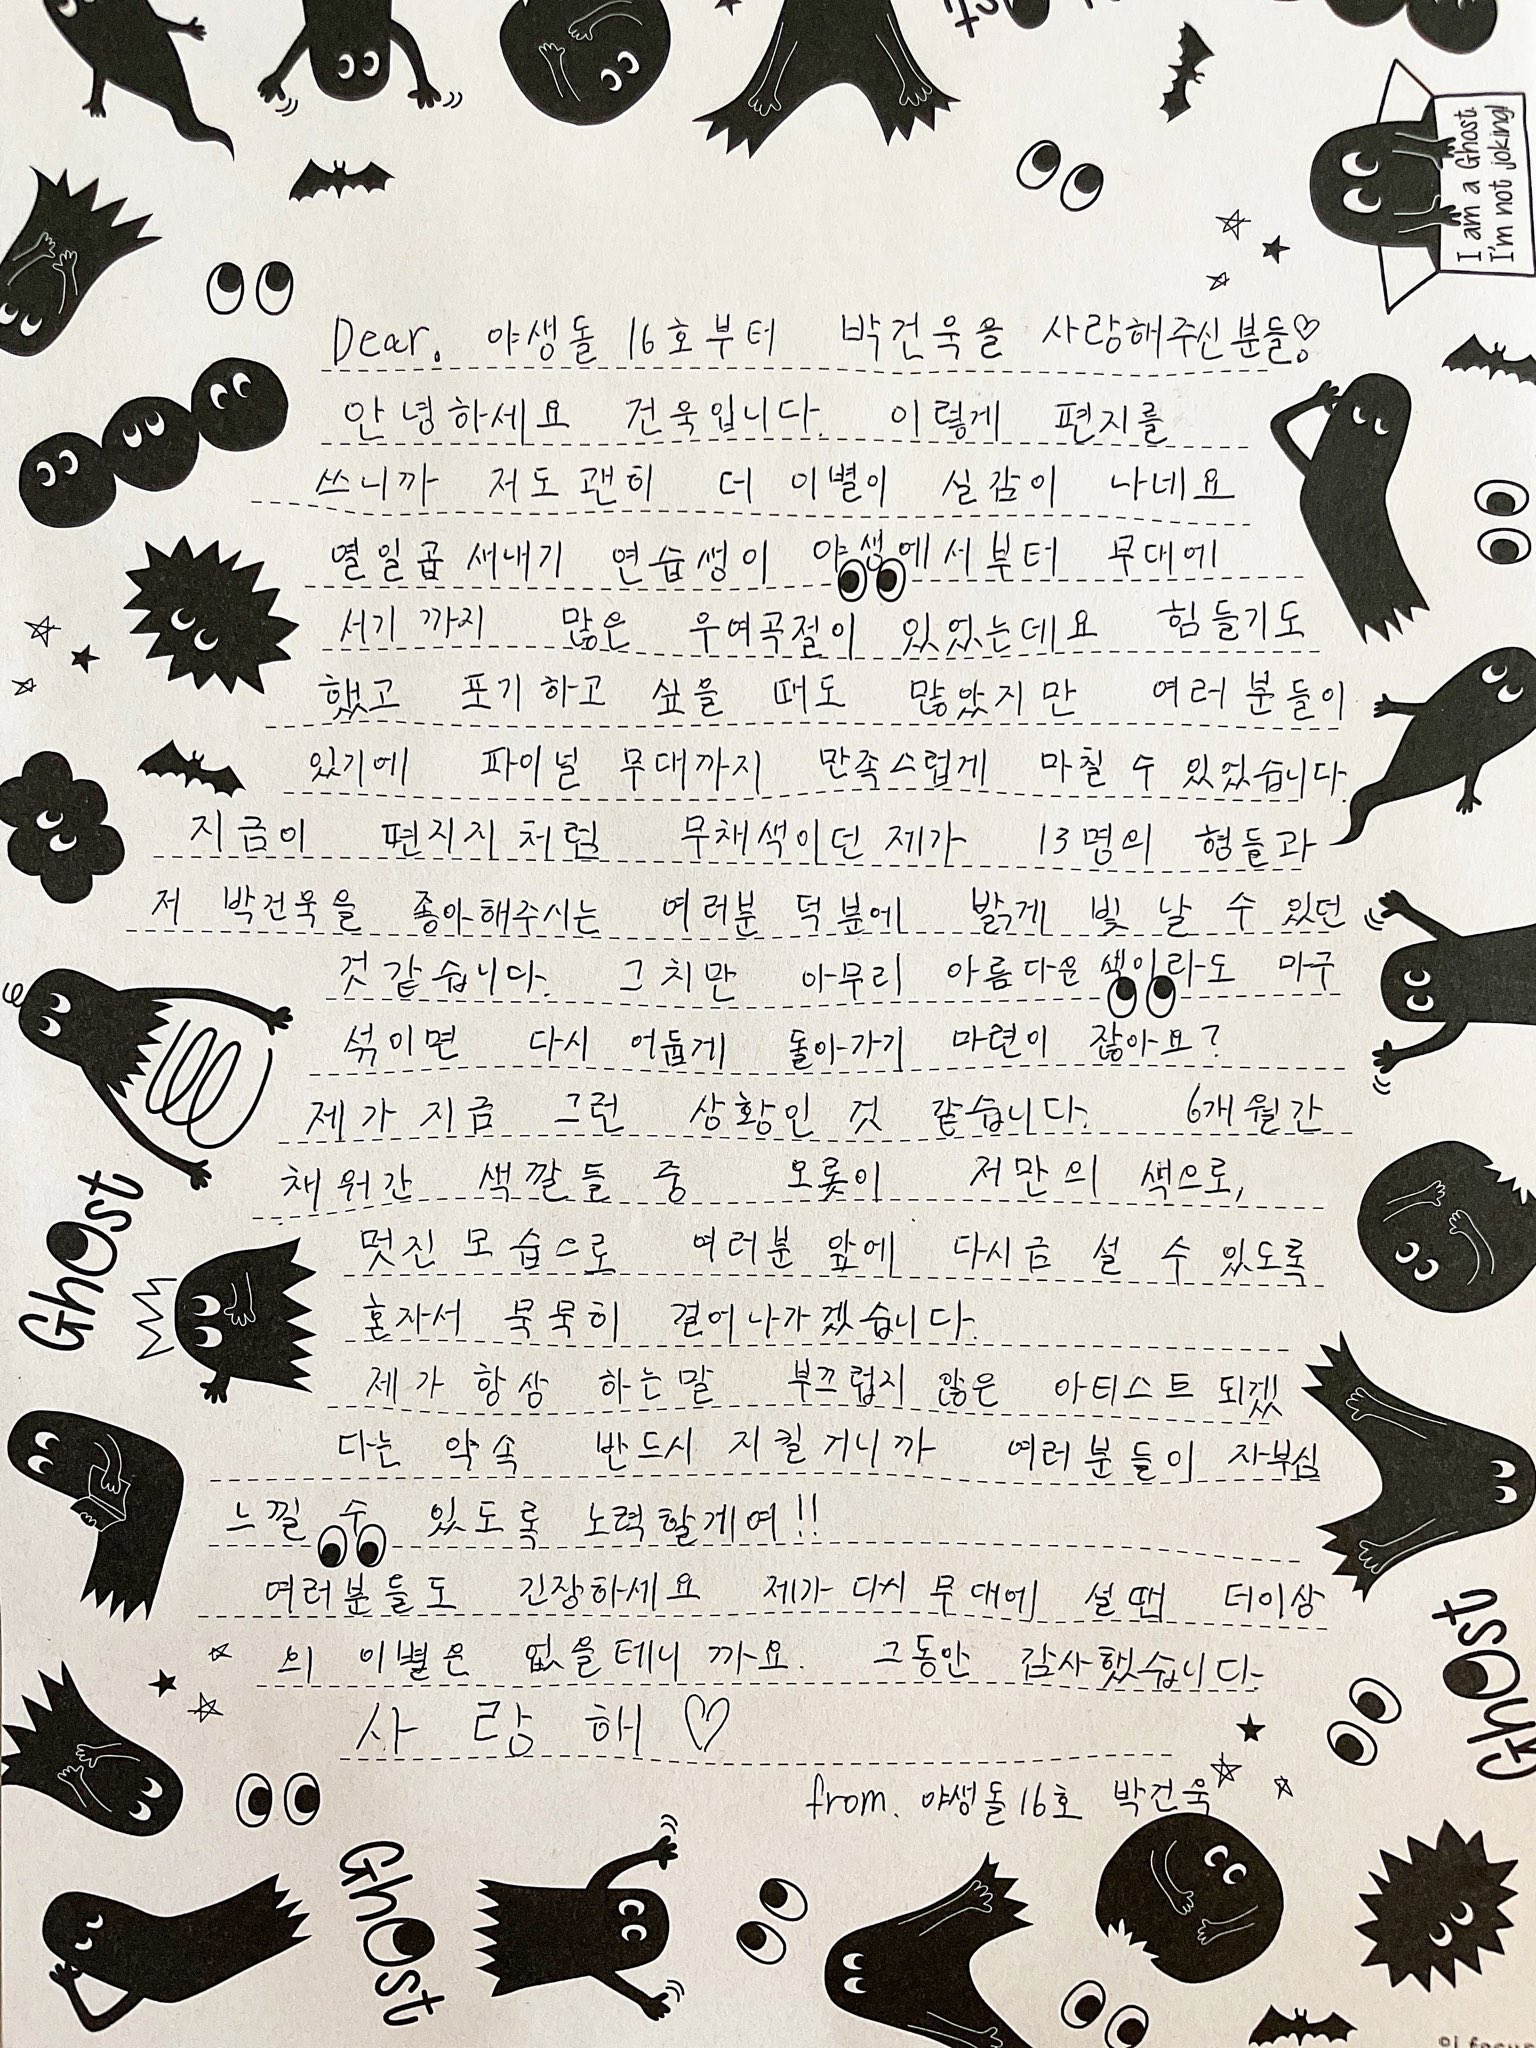 Dear. 야생돌 16호부터 박건욱을 사랑해주신분들♡
안녕하세요 건욱입니다. 이렇게 편지를
쓰니까 저도 괜히 더 이별이 실감이 나네요
열일곱 새내기 연습생이 야생에서부터 무대에
서기까지 많은 우여곡절이 있었는데요 힘들기도
했고 포기하고 싶을 때도 많았지만 여러분들이
있기에 파이널 무대까지 만족스럽게 마칠 수 있었습니다.
지금이 편지지처럼 무채색이던 제가 13명의 형들과
저 박건욱을 좋아해주시는 여러분 덕분에 밝게 빛 날 수 있던
것같습니다. 그치만 아무리 아름다운 색이라도 마구
섞이면 다시 어둡게 돌아가기 마련이 잖아요?
제가 지금 그런 상황인 것 같습니다. 6개월간
채워간 색깔들 중 오롯이 저만의 색으로,
멋진 모습으로 여러분 앞에 다시금 설 수 있도록
혼자서 묵묵히 걸어나가겠습니다.
제가 항상 하는말 부끄럽지 않은 아티스트 되겠
다는 약속 반드시 지킬거니까 여러분들이 자부심
느낄 수 있도록 노력할게여!!
여러분들도 긴장하세요 제가 다시 무대에 설땐 더이상
의 이별은 없을테니까요. 그동안 감사했습니다.
사랑해♡
from. 야생돌16호 박건욱
I am a Ghost.
I'm not joking!
Ghost
Ghost
Ghost